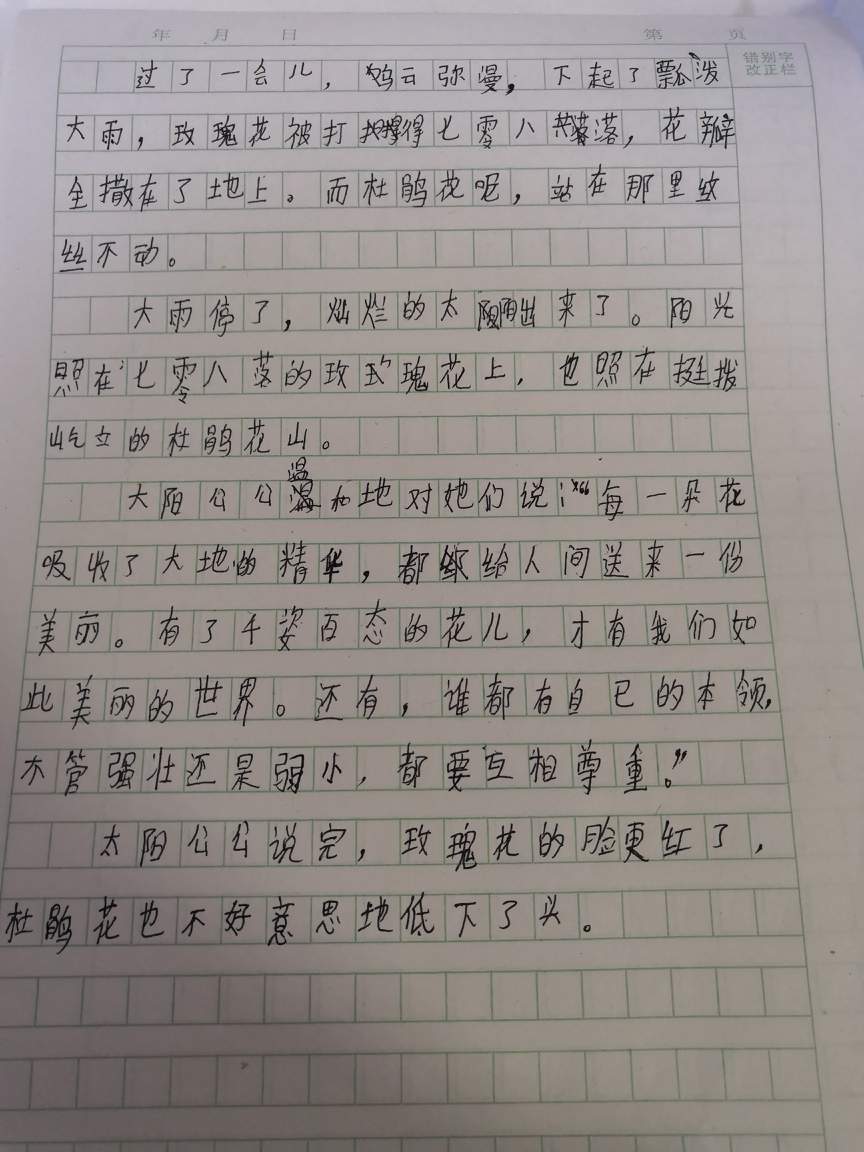 年 月 日 第 页
错别字
改正栏
过了一会儿，乌云弥漫，下起了瓢泼
大雨，玫瑰花被打得七零八落，花瓣
全撒在了地上。而杜鹃花呢，站在那里纹
丝不动。
大雨停了，灿烂的太阳出来了。阳光
照在七零八落的玫瑰花上，也照在挺拨
屹立的杜鹃花山。
太阳公公温和地对她们说：“每一朵花
吸收了大地的精华，都给人间送来一份
美丽。有了千姿百态的花儿，才有我们如
此美丽的世界。还有，谁都有自己的本领，
不管强壮还是弱小，都要互相尊重。”
太阳公公说完，玫瑰花的脸更红了，
杜鹃花也不好意思地低下了头。